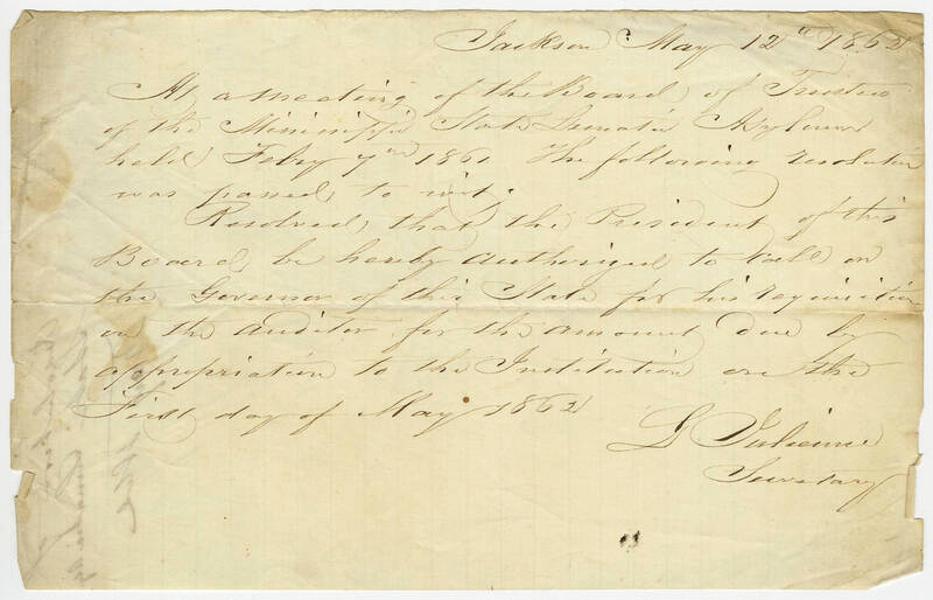 Jackson May 12th 1862
At a meeting of the Board of Trustees
of the Mississippi State Lunatic Asylum
held Feby 7th 1861 The following resolution
was passed, to wit:
Resolved, that the President of this
Board, be hereby authorized to call on
the Governor of this State for his requisition
on the auditor for the amount due by
appropriation to the Institution on the
First day of May 1862
L Julienne
Secretary